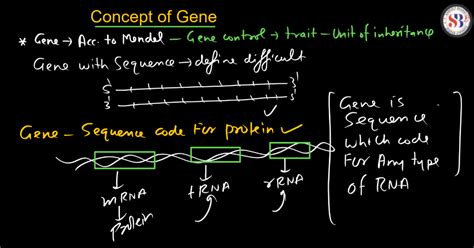 Concept of Gene
* Gene → Acc. to Mendel — Gene control → trait — Unit of inheritance
Gene with Sequence → define difficult
5' 3'
3' 5'
Gene – Sequence code For protein ✓
mRNA tRNA rRNA
protein
Gene is
Sequence
which code
For Any type
of RNA
SB